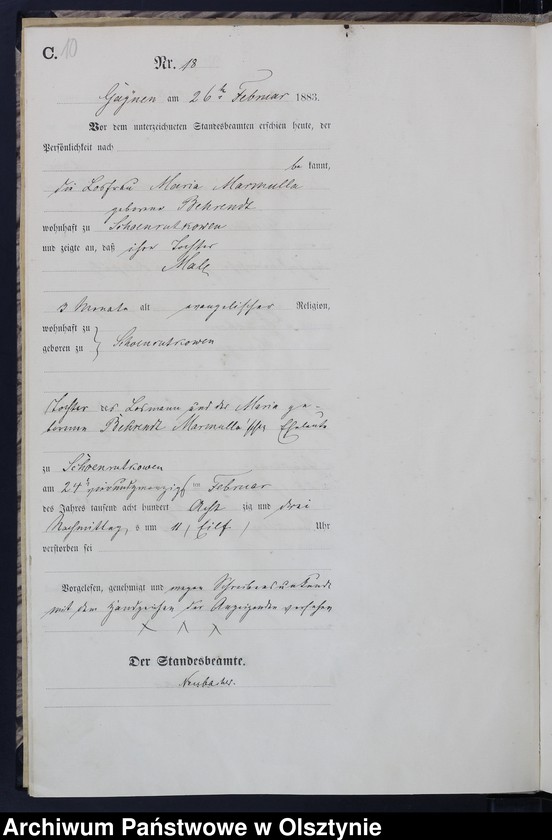 C. 10
Nr. 18
Gaynen am 26ten Februar 1883.
Vor dem unterzeichneten Standesbeamten erschien heute, der
Persönlichkeit nach
be kannt,
die Losfrau Maria Marmulla
geborene Behrendt
wohnhaft zu Schoenrutkowen
und zeigte an, daß ihre Tochter
Male
3 Monate alt evangelischer Religion,
wohnhaft zu
geboren zu Schoenrutkowen
Tochter des Losmann und der Maria ge-
borenen Behrendt Marmulla'schen Eheleute
zu Schoenrutkowen
am 24ten vierundzwanzigsten Februar
des Jahres tausend acht hundert Acht zig und drei
Nachmittag s um 11 (Eilf) Uhr
verstorben sei
Vorgelesen, genehmigt und wegen Schreibensunkunde
mit dem Handzeichen der Anzeigenden versehen
Der Standesbeamte.
Archiwum Państwowe w Olsztynie